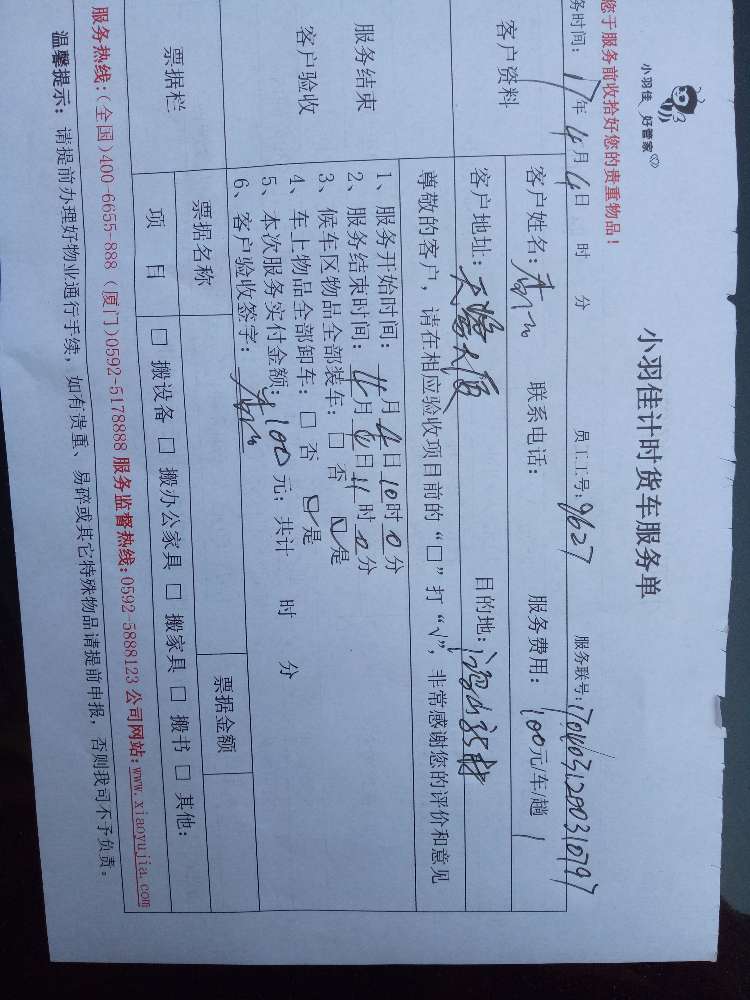 小羽佳 好管家
小羽佳计时货车服务单
您于服务前收拾好您的贵重物品！
务时间：17年4月4日 时 分 员工工号：9627 服务联号：170403120310797
客户资料
客户姓名： 联系电话： 服务费用：100元/车/趟
客户地址：天鹭大厦 目的地：
服务结束
客户验收
尊敬的客户，请在相应验收项目前的“□”打“√”，非常感谢您的评价和意见
1、服务开始时间：4月4日10时0分
2、服务结束时间：4月4日11时0分
3、候车区物品全部装车：□ 否 □是
4、车上物品全部卸车：□ 否 □是
5、本次服务实付金额：100元；共计 时 分
6、客户验收签字：
票据栏
票据名称 票据金额
项 目 □ 搬设备 □ 搬办公家具 □ 搬家具 □ 搬书 □ 其他：
服务热线：(全国)400-6655-888 (厦门)0592-5178888 服务监督热线：0592-5888123 公司网站：www.xiaoyujia.com
温馨提示：请提前办理好物业通行手续，如有贵重、易碎或其它特殊物品请提前申报，否则我司不予负责。